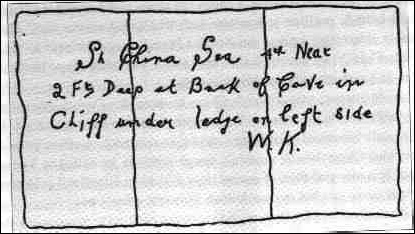 China Sea Near
2 Fs Deep at Back of Cave in
Cliff under ledge on left side
W. K.